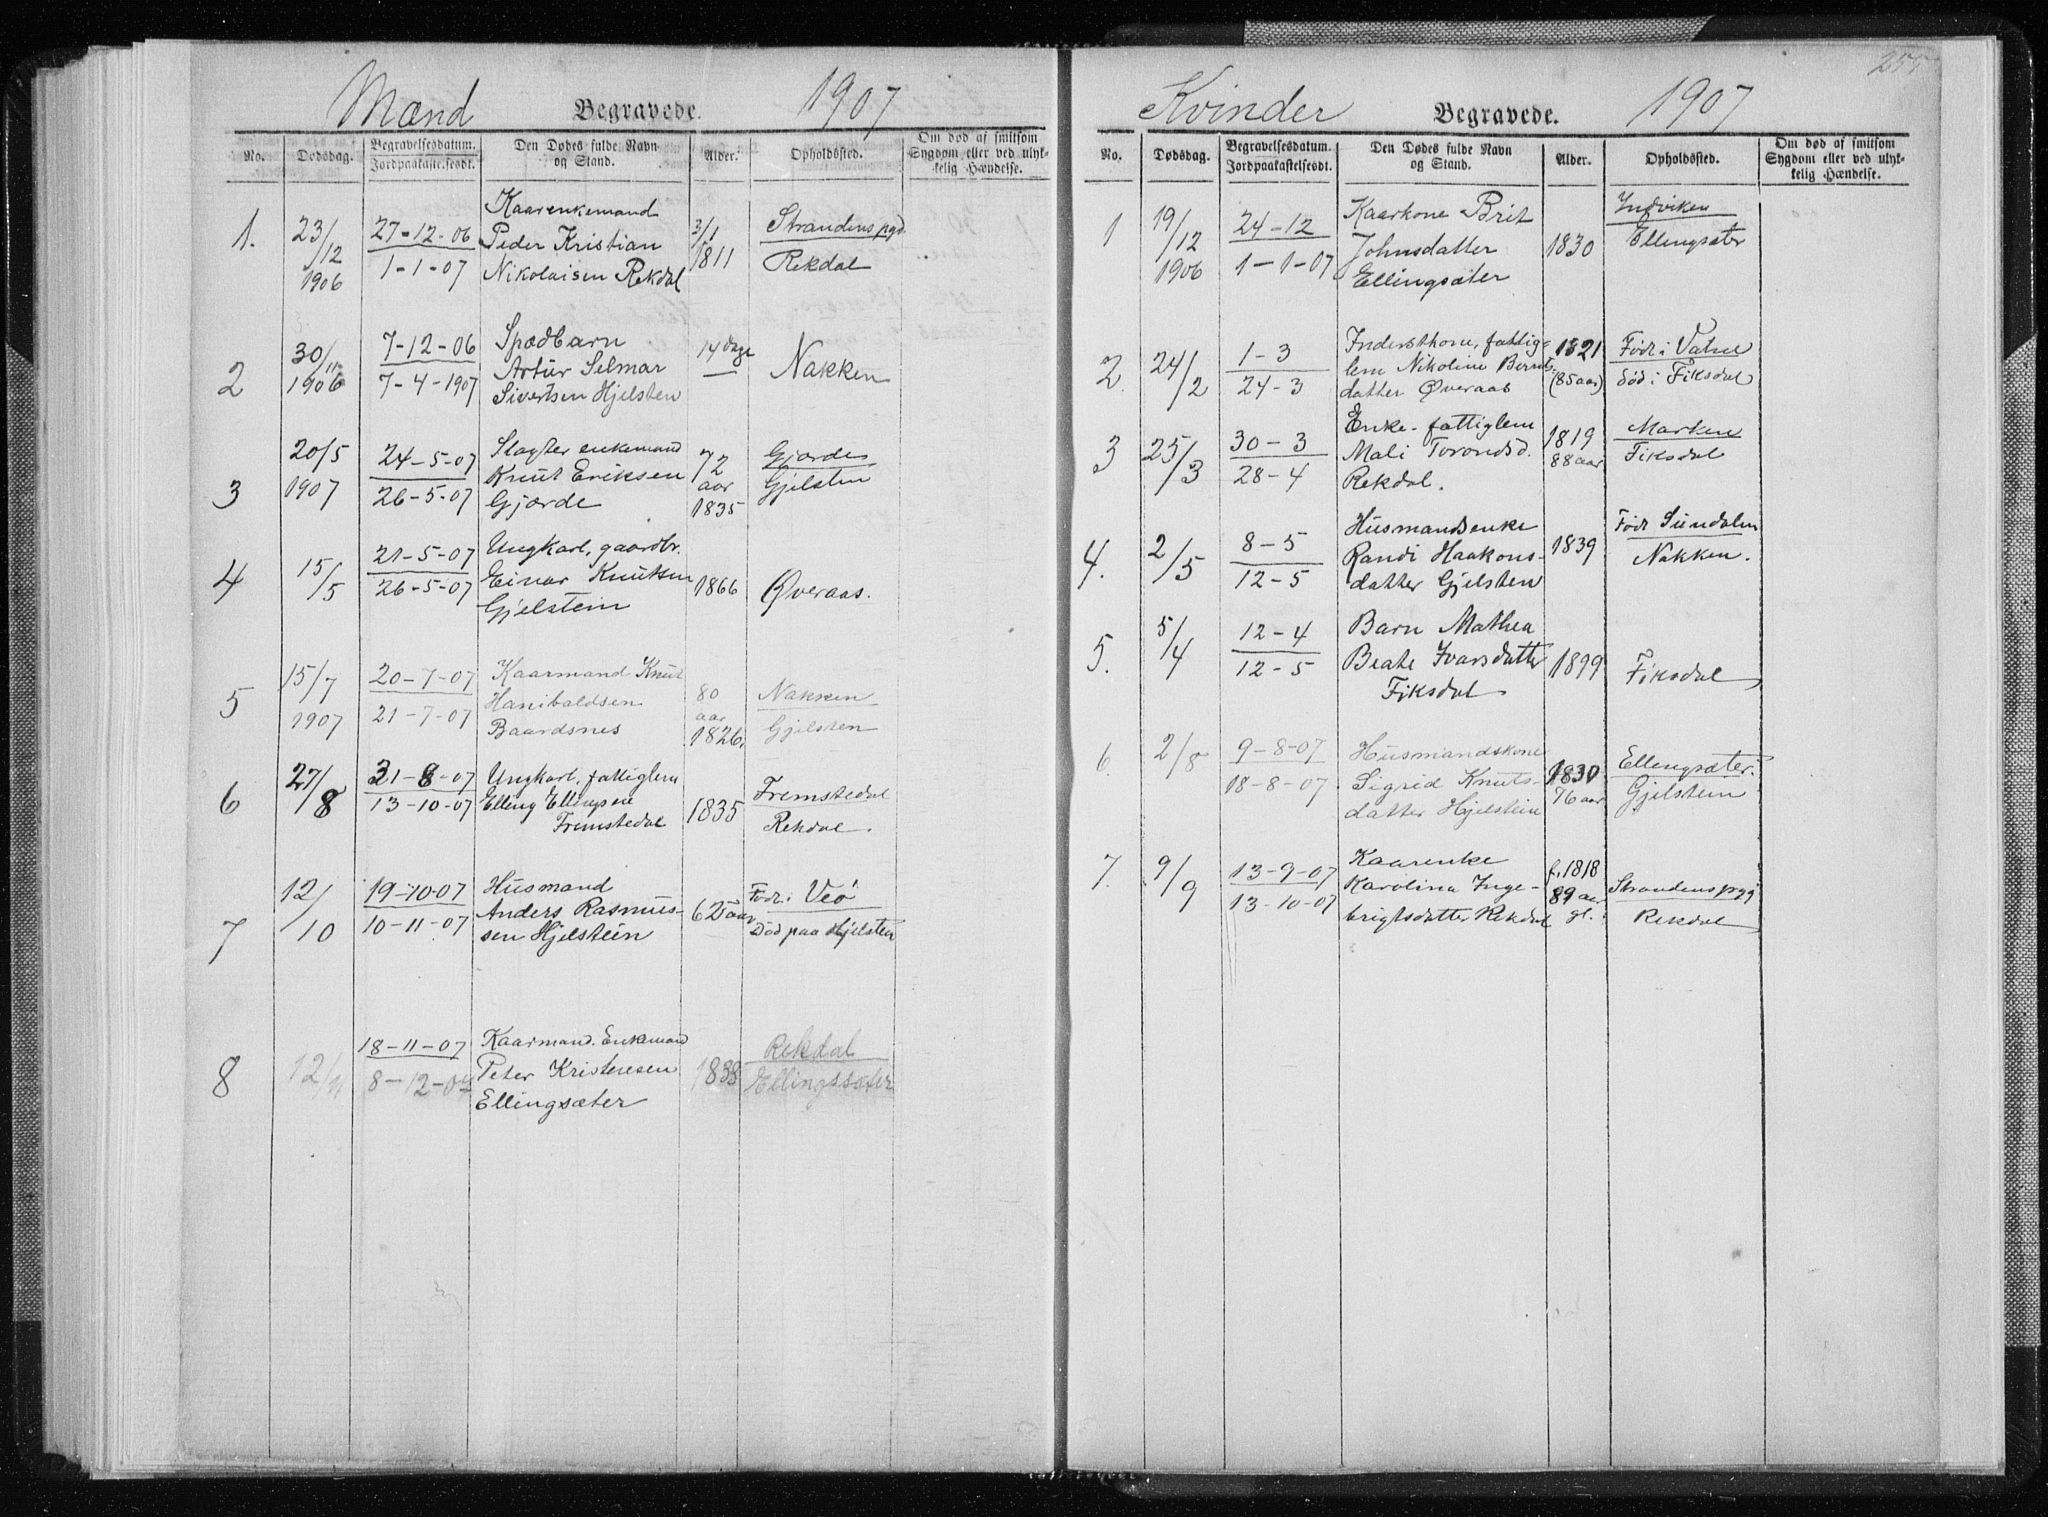 Mænd Begravede. 1907
No. Dødsdag. Begravelsesdatum. Jordpaakastelsesdt. Den Dødes fulde Navn og Stand. Alder. Opholdssted. Om død af smitsom Sygdom eller ved ulykkelig Hændelse.
1. 23/12 1906
27-12-06
1-1-07
Kaarenkemand
Peder Kristian
Nikolaisen Rekdal
3/1
1811
Strandens pgd
Rekdal
2 30/11 1906
7-12-06
7-4-1907
Spædbarn
Artur Selmar
Sivertsen Hjelsten
14 dage
Nakken
3 20/5 1907
24-5-07
26-5-07
Slagter enkemand
Knut Eriksen
Gjørde
72
aar
1835
Gjørde
Gjelsten
4 15/5
21-5-07
26-5-07
Ungkarl, gaardbr.
Einar Knutsen
Gjelstein
1866
Øveraas.
5 15/7 1907
20-7-07
21-7-07
Kaarmand Knut
Hanibaldsen
Baardsnes
80
aar
1826.
Nakken
Gjelsten
6 27/8
31-8-07
13-10-07
Ungkarl, fattiglem
Elling Ellingsen
Fremstedal
1835
Fremstedal
Rekdal.
7 12/10
19-10-07
10-11-07
Husmand
Anders Rasmus-
sen Hjelstein
62 aar
Født i Veø
Død paa Hjelsten
8 12/11
18-11-07
8-12-07
Kaarmand. Enkemand
Peter Kristensen
Ellingsæter
1838
Rekdal
Ellingssæter
255
Kvinder Begravede. 1907
No. Dødsdag. Begravelsesdatum. Jordpaakastelsesdt. Den Dødes fulde Navn og Stand. Alder. Opholdssted. Om død af smitsom Sygdom eller ved ulykkelig Hændelse.
1 19/12 1906
24-12
1-1-07
Kaarkone Brit
Johnsdatter
Ellingsæter
1830
Indviken
Ellingsæter
2. 24/2
1-3
24-3
Inderstkone, fattig-
lem Nikoline Bernts-
datter Øveraas
1821
(85 aar)
Født i Vatne
død i Fiksdal
3 25/3
30-3
28-4
Enke- fattiglem
Mali Torondsd.
Rekdal.
1819
88 aar
Marken
Fiksdal
4. 2/5
8-5
12-5
Husmandsenke
Randi Haakons-
datter Gjelsten
1839
Født Sundalen
Nakken.
5. 5/4
12-4
12-5
Barn Mathea
Beate Ivarsdatter
Fiksdal
1899
Fiksdal
6. 2/8
9-8-07
18-8-07
Husmandskone
Sigrid Knuts-
datter Hjelstein
1830
76 aar
Ellengsæter.
Gjelstein
7. 9/9
13-9-07
13-10-07
Kaarenke
Karolina Inge-
brigtsdatter Rekdal
f. 1818
89 aar
gl.
Strandens pgd
Rekdal